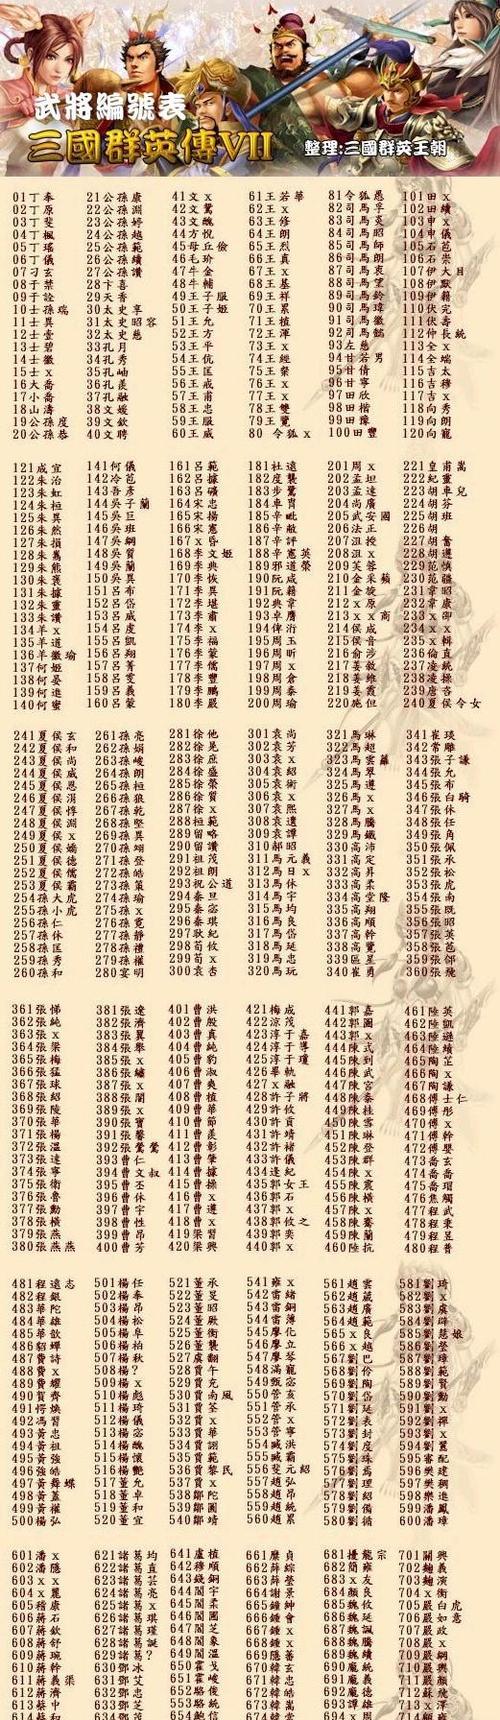 武將編號表
三國群英傳VII 整理:三國群英王朝
01丁奉 21公孫康 41文x 61王若華 81令狐愚 101田x
02丁原 22公孫淵 42文鴦 62王x 82司馬孚 102田續
03丁斐 23公孫婷 43文醜 63王修 83司馬炎 103申x
04丁楓 24公孫越 44方悅 64王朗 84司馬昭 104申儀
05丁瑤 25公孫範 45毋丘儉 65王烈 85司馬師 105石苞
06丁儀 26公孫續 46毛玠 66王真 86司馬朗 106石崇
07刁玄 27公孫讚 47牛金 67王x 87司馬衷 107伊大目
08于禁 28卞喜 48牛輔 68王基 88司馬望 108伊默
09于詮 29天香 49王子服 69王祥 89司馬鈴 109伊籍
10士孫瑞 30太史享 50王子姬 70王累 90司馬瑋 110伏完
11士異 31太史昭容 51王允 71王植 91司馬徽 111伏壽
12士壹 32太史慈 52王方 72王渾 92司馬懿 112仲長統
13士碧 33孔月 53王平 73王x 93左慈 113全x
14士徽 34孔秀 54王伉 74王經 94甘若男 114全端
15士x 35孔岫 55王匡 75王粲 95甘倩 115吉太
16大喬 36孔羨 56王戒 76王x 96甘寧 116吉穆
17小喬 37孔融 57王甫 77王x 97田欣 117吉x
18山濤 38文媛 58王忠 78王雙 98田楷 118向秀
19公孫度 39文欽 59王威 79王覽 99田豫 119向朗
20公孫恭 40文聘 60王威 80令狐x 100田豐 120向寵
121成宜 141何儀 161呂範 181杜遠 201周x 221皇甫嵩
122朱治 142冷苞 162呂據 182度襲 202孟坦 222紀靈
123朱虹 143吾彥 163呂曠 183步鷺 203孟達 223胡車兒
124朱桓 144吳子蘭 164宋忠 184車冑 204尚廣 224胡芬
125朱異 145吳巨 165宋揚 185辛毗 205武安國 225胡班
126朱然 146吳班 166宋憲 186辛敞 206法正 226胡x
127朱損 147吳綱 167x昏 187辛評 207沮授 227胡奮
128朱雋 148吳質 168李文姬 188辛憲英 208沮x 228胡遵
129朱熊 149吳蘭 169李典 189邢道榮 209芙蓉 229范慎
130朱褒 150吳懿 170李恢 190阮咸 210金采蘋 230范疆
131朱據 151呂布 171李x 191阮籍 211金旋 231韋昭
132朱靈 152呂岱 172李堪 192典韋 212x原 232韋康
133朱讚 153呂威 173李肅 193卓膺 213xx商 233x卻
134羊x 154呂虔 174李x 194俾衍 214侯成 234xx
135羊道 155呂凱 175李福 195周玉 215侯音 235x輯
136羊徽瑜 156呂翔 176李x 196周昕 216俞涉 236倫直
137何姬 157呂菁 177李儒 197周x 217姜敘 237凌統
138何晏 158呂雯 178李豐 198周倉 218姜維 238凌操
139何進 159呂義 179李鵬 199周泰 219姜霞 239唐咨
140何蜜 160呂蒙 180李嚴 200周瑜 220施但 240夏侯令女
241夏侯玄 261孫亮 281徐他 301袁尚 321馬琳 341崔琰
242夏侯和 262孫娟 282徐晃 302袁芳 322馬超 342常雕
243夏侯尚 263孫峻 283徐庶 303袁x 323馬雲蘿 343張子謙
244夏侯威 264孫朗 284徐盛 304袁紹 324馬翠 344張允
245夏侯恩 265孫桓 285徐榮 305袁術 325馬遵 345張布
246夏侯涓 266孫狼 286徐質 306袁x 326馬x 346張白騎
247夏侯惇 267孫乾 287徐x 307袁熙 327馬x 347張休
248夏侯淵 268孫堅 288桓範 308袁遺 328馬騰 348張任
249夏侯x 269孫異 289留略 309袁譚 329馬鐵 349張角
250夏侯嬌 270孫翊 290留讚 310郝昭 330高沛 350張佩
251夏侯德 271孫登 291祖茂 311馬元義 331高定 351張承
252夏侯儒 272孫皓 292祖朗 312馬日x 332高昇 352張松
253夏侯霸 273孫策 293祝公道 313馬休 333高柔 353張虎
254孫大虎 274孫瑜 294秦旦 314馬宇 334高堂隆 354張南
255孫小虎 275孫x 295秦宓 315馬均 335高翔 355張既
256孫仁 276孫寬 296秦琪 316馬良 336高順 356張昭
257孫休 277孫靜 297耿紀 317馬岱 337高幹 357張英
258孫匡 278孫禮 298荀攸 318馬延 338高覽 358張苞
259孫秀 279孫權 299荀x 319馬忠 339區星 359張郃
260孫和 280宴明 300袁杏 320馬玩 340崔勇 360張飛
361張悌 381張遼 401曹洪 421梅成 441郭嘉 461陸英
362張純 382張濟 402曹殷 422涼茂 442郭圖 462陸凱
363張x 383張翼 403曹真 423淳于嘉 443郭x 463陸遜
364張梁 384張舉 404曹純 424淳于導 444陳式 464陸績
365張梅 385張x 405曹x 425淳于瓊 445陳到 465陶芷
366張猛 386張繡 406曹淑 426畢軌 446陳武 466陶x
367張球 387張x 407曹爽 427x融 447陳宮 467陶謙
368張紹 388張闓 408曹植 428許子將 448陳泰 468傅士仁
369張陵 389張x 409曹華 429許攸 449陳桂 469傅彤
370張華 390張寶 410曹節 430許貢 450陳雪 470傅x
371張楊 391張馨 411曹羨 431許靖 451陳琳 471傅幹
372張溫 392張鶯鶯 412曹彰 432許褚 452陳登 472傅嬰
373張達 393曹仁 413曹肇 433許儀 453陳群 473喬玄
374張寧 394曹文叔 414曹x 434逢紀 454陳x 474喬裔
375張衛 395曹丕 415曹操 435郭女王 455陳震 475喬瑁
376張魯 396曹休 416曹x 436郭石 456陳橫 476焦觸
377張勳 397曹宇 417曹遵 437郭x 457陳應 477程武
378張橫 398曹性 418曹x 438郭攸之 458陳騫 478程秉
379張燕 399曹昂 419梁習 439郭奕 459陳蘭 479程昱
380張燕燕 400曹芳 420梁興 440郭x 460陸抗 480程普
481程遠志 501楊任 521董承 541雍x 561趙雲 581劉琦
482程銀 502楊奉 522董旻 542雷緒 562趙葳 582劉x
483華陀 503楊昂 523董昭 543雷銅 563趙廣 583劉虞
484華雄 504楊松 524董厥 544雷薄 564趙範 584劉辟
485華歆 505楊阜 525董衡 545廖化 565x良 585劉慧娘
486貂蟬 506楊柏 526董襲 546廖立 566x越 586劉磐
487費詩 507楊秋 527虞翻 547廖琴 567劉巴 587劉璋
488費x 508楊? 528賈午 548滿寵 568劉伶 588劉範
489費耀 509楊x 529賈充 549甄宓 569劉陶 589劉賢
490賀齊 510楊彪 530賈南風 550管亥 570劉岱 590劉勳
491愕煥 511楊琦 531賈荃 551管x 571劉延 591劉x
492馮習 512楊儀 532賈x 552管x 572劉表 592劉禪
493黃忠 513楊宓 533賈華 553管寧 573劉封 593劉x
494黃祖 514楊醜 534賈詡 554臧洪 574劉度 594劉焉
495黃強 515楊懷 535賈範 555臧霸 575劉珠 595審配
496強皓 516楊艷 536賈黎民 556斐元紹 576劉焉 596樊建
497黃舞蝶 517董允 537賈x 557趙弘 577劉理 597樊稠
498黃蓋 518董卓 538鄒陀 558趙昂 578劉紹 598樂進
499黃權 519董和 539鄒圖 559趙統 579劉備 599潘鳳
500楊弘 520董宜 540鄒靖 560趙累 580劉循 600潘璋
601潘x 621諸葛均 641盧植 661糜貞 681擾龍宗 701關興
602潘隱 622諸葛直 642穆順 662薛綜 682簡雍 702麴義
603xx 623諸葛x 643錢銅 663薛瑩 683x友 703麴演
604x麗 624諸葛亮 644閻宇 664謝景 684顏良 704x衡
605稽康 625諸葛x 645閻柔 665鍾紳 685魏攸 705嚴白虎
606蔣石 626諸葛琪 646閻圃 666鍾會 686魏延 706嚴如意
607蔣欽 627諸葛瑾 647閻芝 667鍾x 687魏諷 707嚴政
608蔣舒 628諸葛誕 648閻象 668鍾x 688魏騰 708嚴x
609蔣琬 629諸葛? 649閻溫 669隱蕃 689魏續 709嚴綱
610蔣幹 630鄧冰 650霍弋 670韓玄 690龐統 710嚴輿
611蔣義渠 631鄧艾 651霍峻 671韓忠 691龐羲 711嚴顏
612蔣濟 632鄧忠 652駱俊 672韓浩 692龐德 712蘇飛
613蔡中 633鄧芝 653駱統 673韓嵩 693譚雄 713x澤
614蔡和 634鄧x 654鮑信 674韓x 694關x